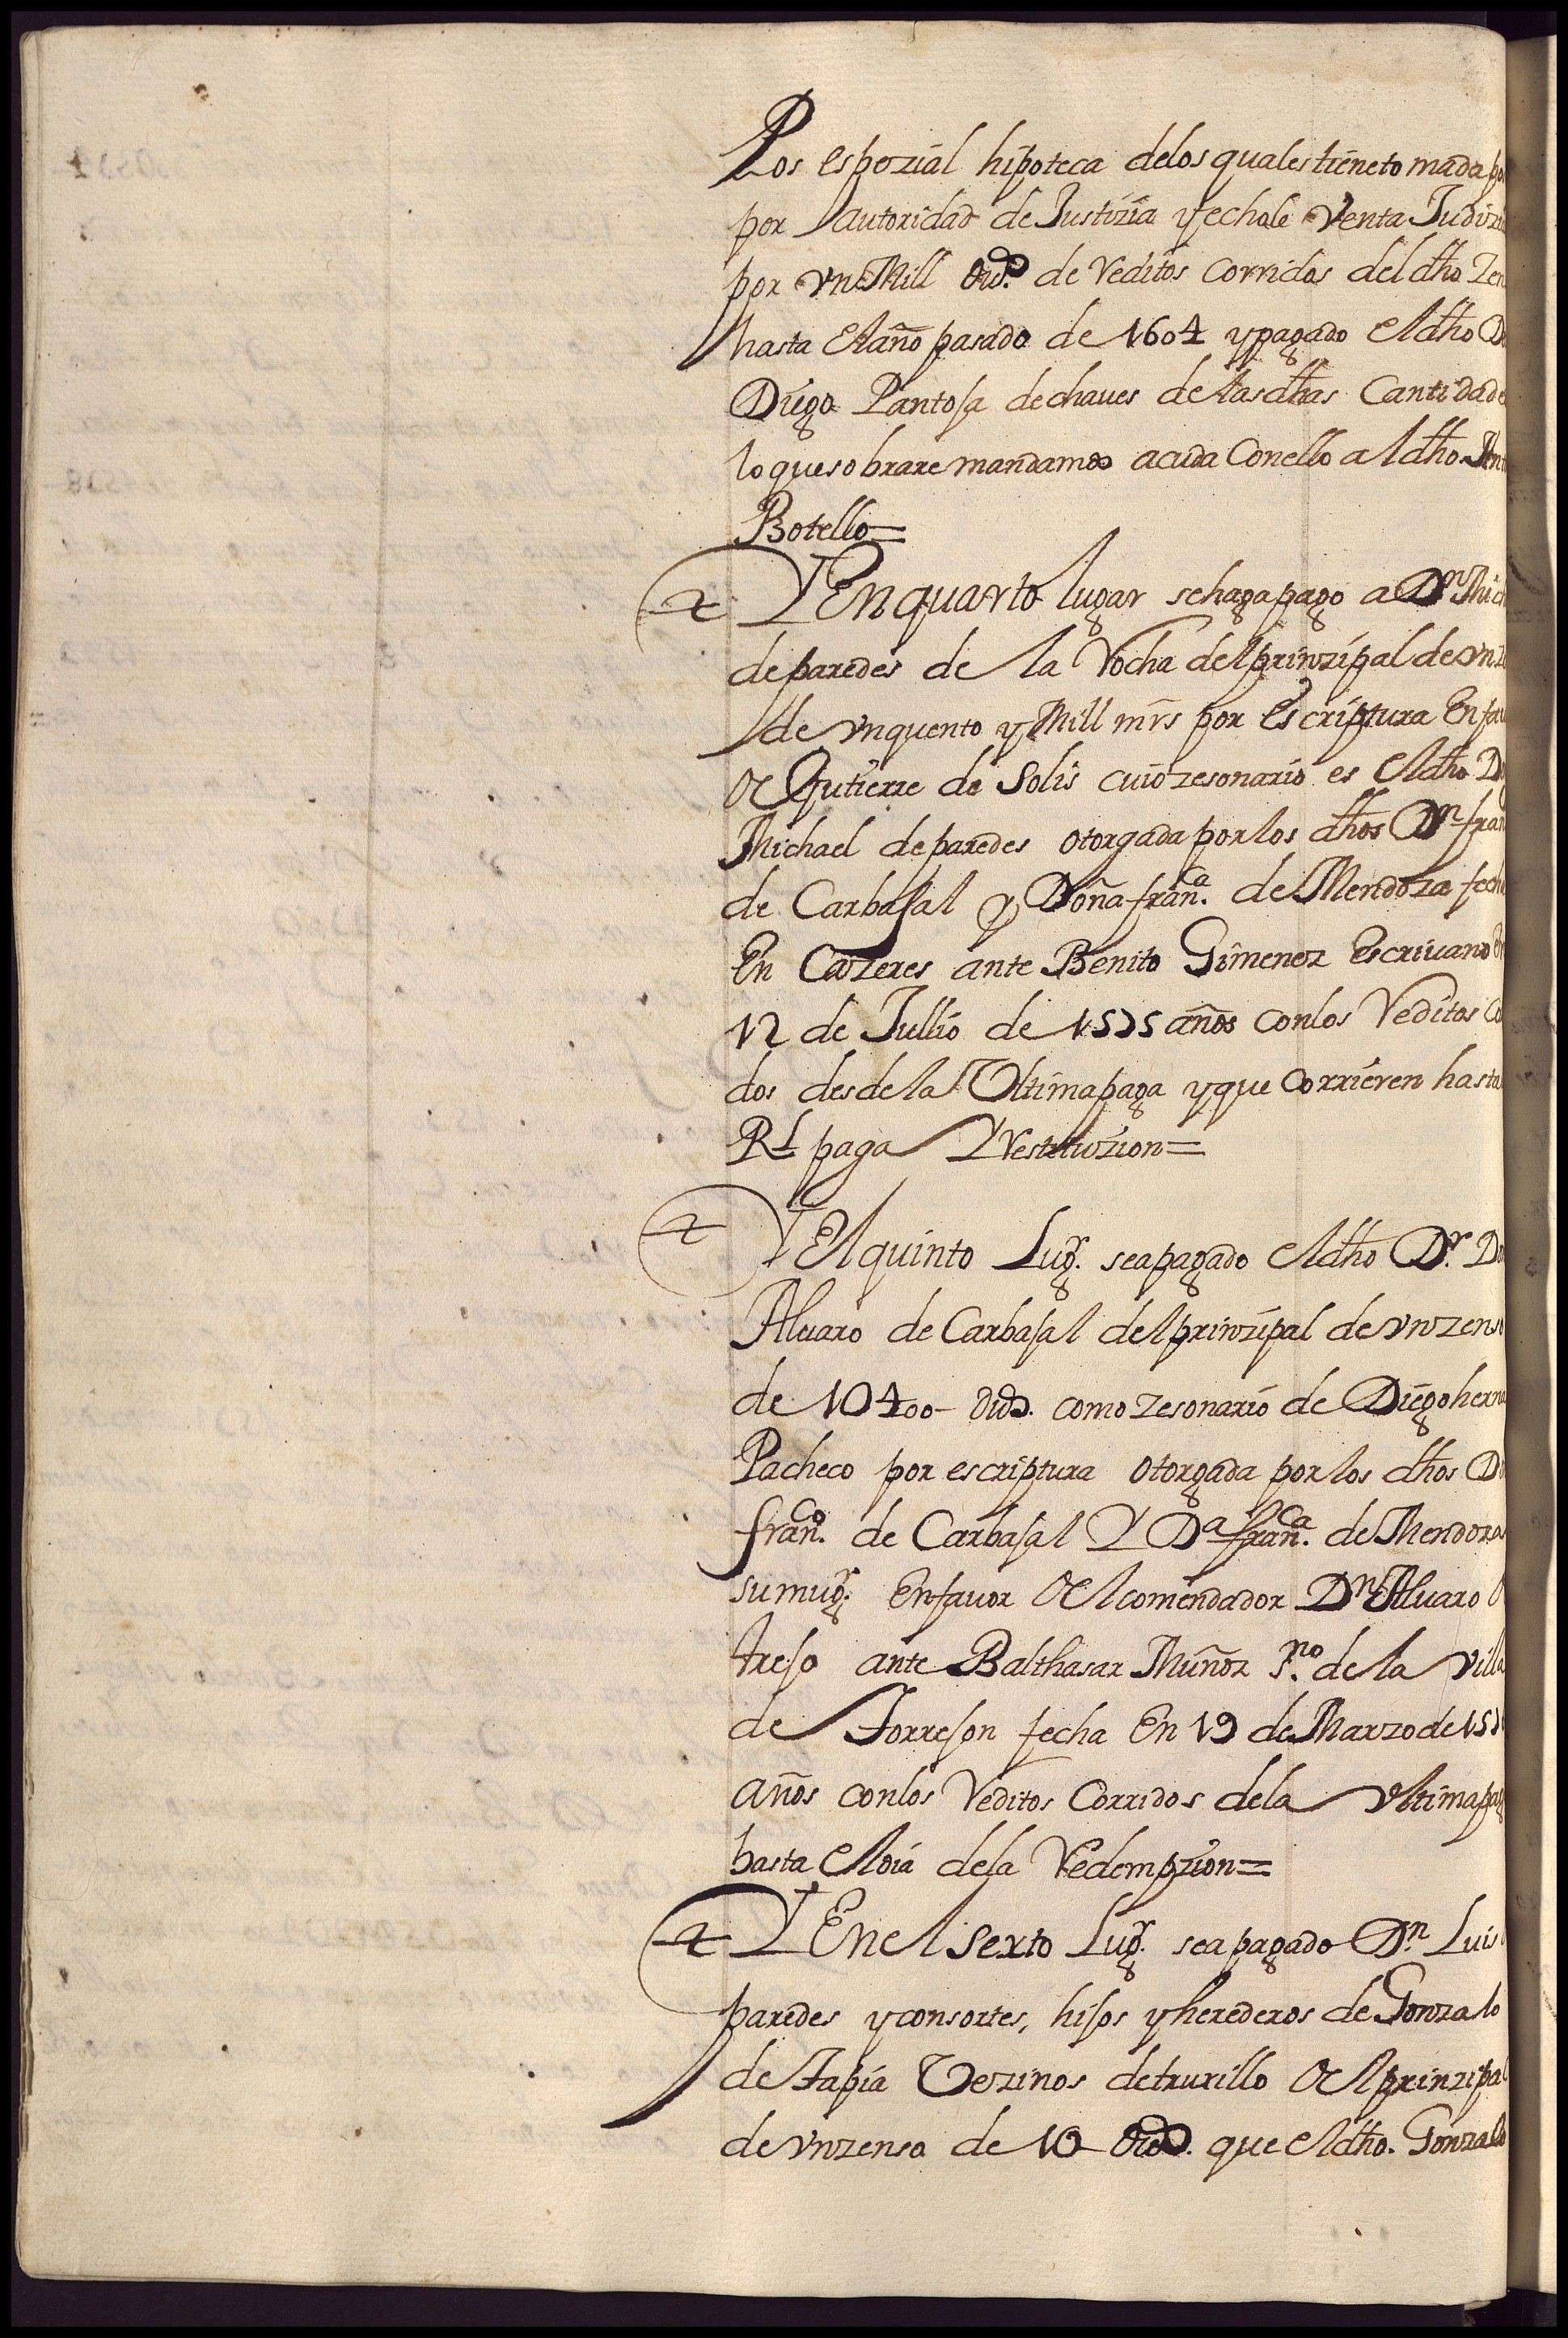 Los espezial hipoteca delos quales tiene tomada po
por autoridad de Justizia y echole Venta Judizi
por vn Mill dud.s de Reditos Corridos del dho Zen
hasta el año pasado de 1604 y pagado el dho D
Diego Pantoja de chaues de las dhas Cantidade
lo que sobrare mandamos acuda Con ello al dho
Botello=
Y En quarto lugar se haga pago a Dn Mich
de paredes de la Rocha del prinzipal de vn z
de vn quento y Mill mrs por Escriptura En fau
de Gutierre de Solis cuio zesonario es el dho D
Michael de paredes otorgada por los dhos Dn fran
de Carbajal y Doña fran.ca de Mendoza fech
En Cazeres ante Benito Gimenez Escriuano
12 de Jullio de 1575 años con los Reditos Co
dos desde la Vltima paga y que Corrieren hasta
Rl paga Y Restituzion=
Y El quinto Lugr. sea pagado el dho Dr. D
Aluaro de Carbajal del prinzipal de vn zenso
de 10400 dud.s como zesonario de Diego herna
Pacheco por escriptura otorgada por los dhos D
fran.co de Carbajal Y Da fran.ca de Mendoza
su mugr. En favor del comendador Dn Aluaro
trejo ante Balthasar Muñoz s.no de la villa
de Torrejon fecha En 19 de Marzo de 15
años con los Reditos Corridos de la vltima pag
hasta el dia de la Redempzion=
Y En el sexto Lugr. sea pagado Dn. Luis
paredes y consortes, hijos y herederos de Gonzalo
de Tapia Vezinos de truxillo del prinzipal
de vn zenso de 10 dud.s que el dho. Gonzalo